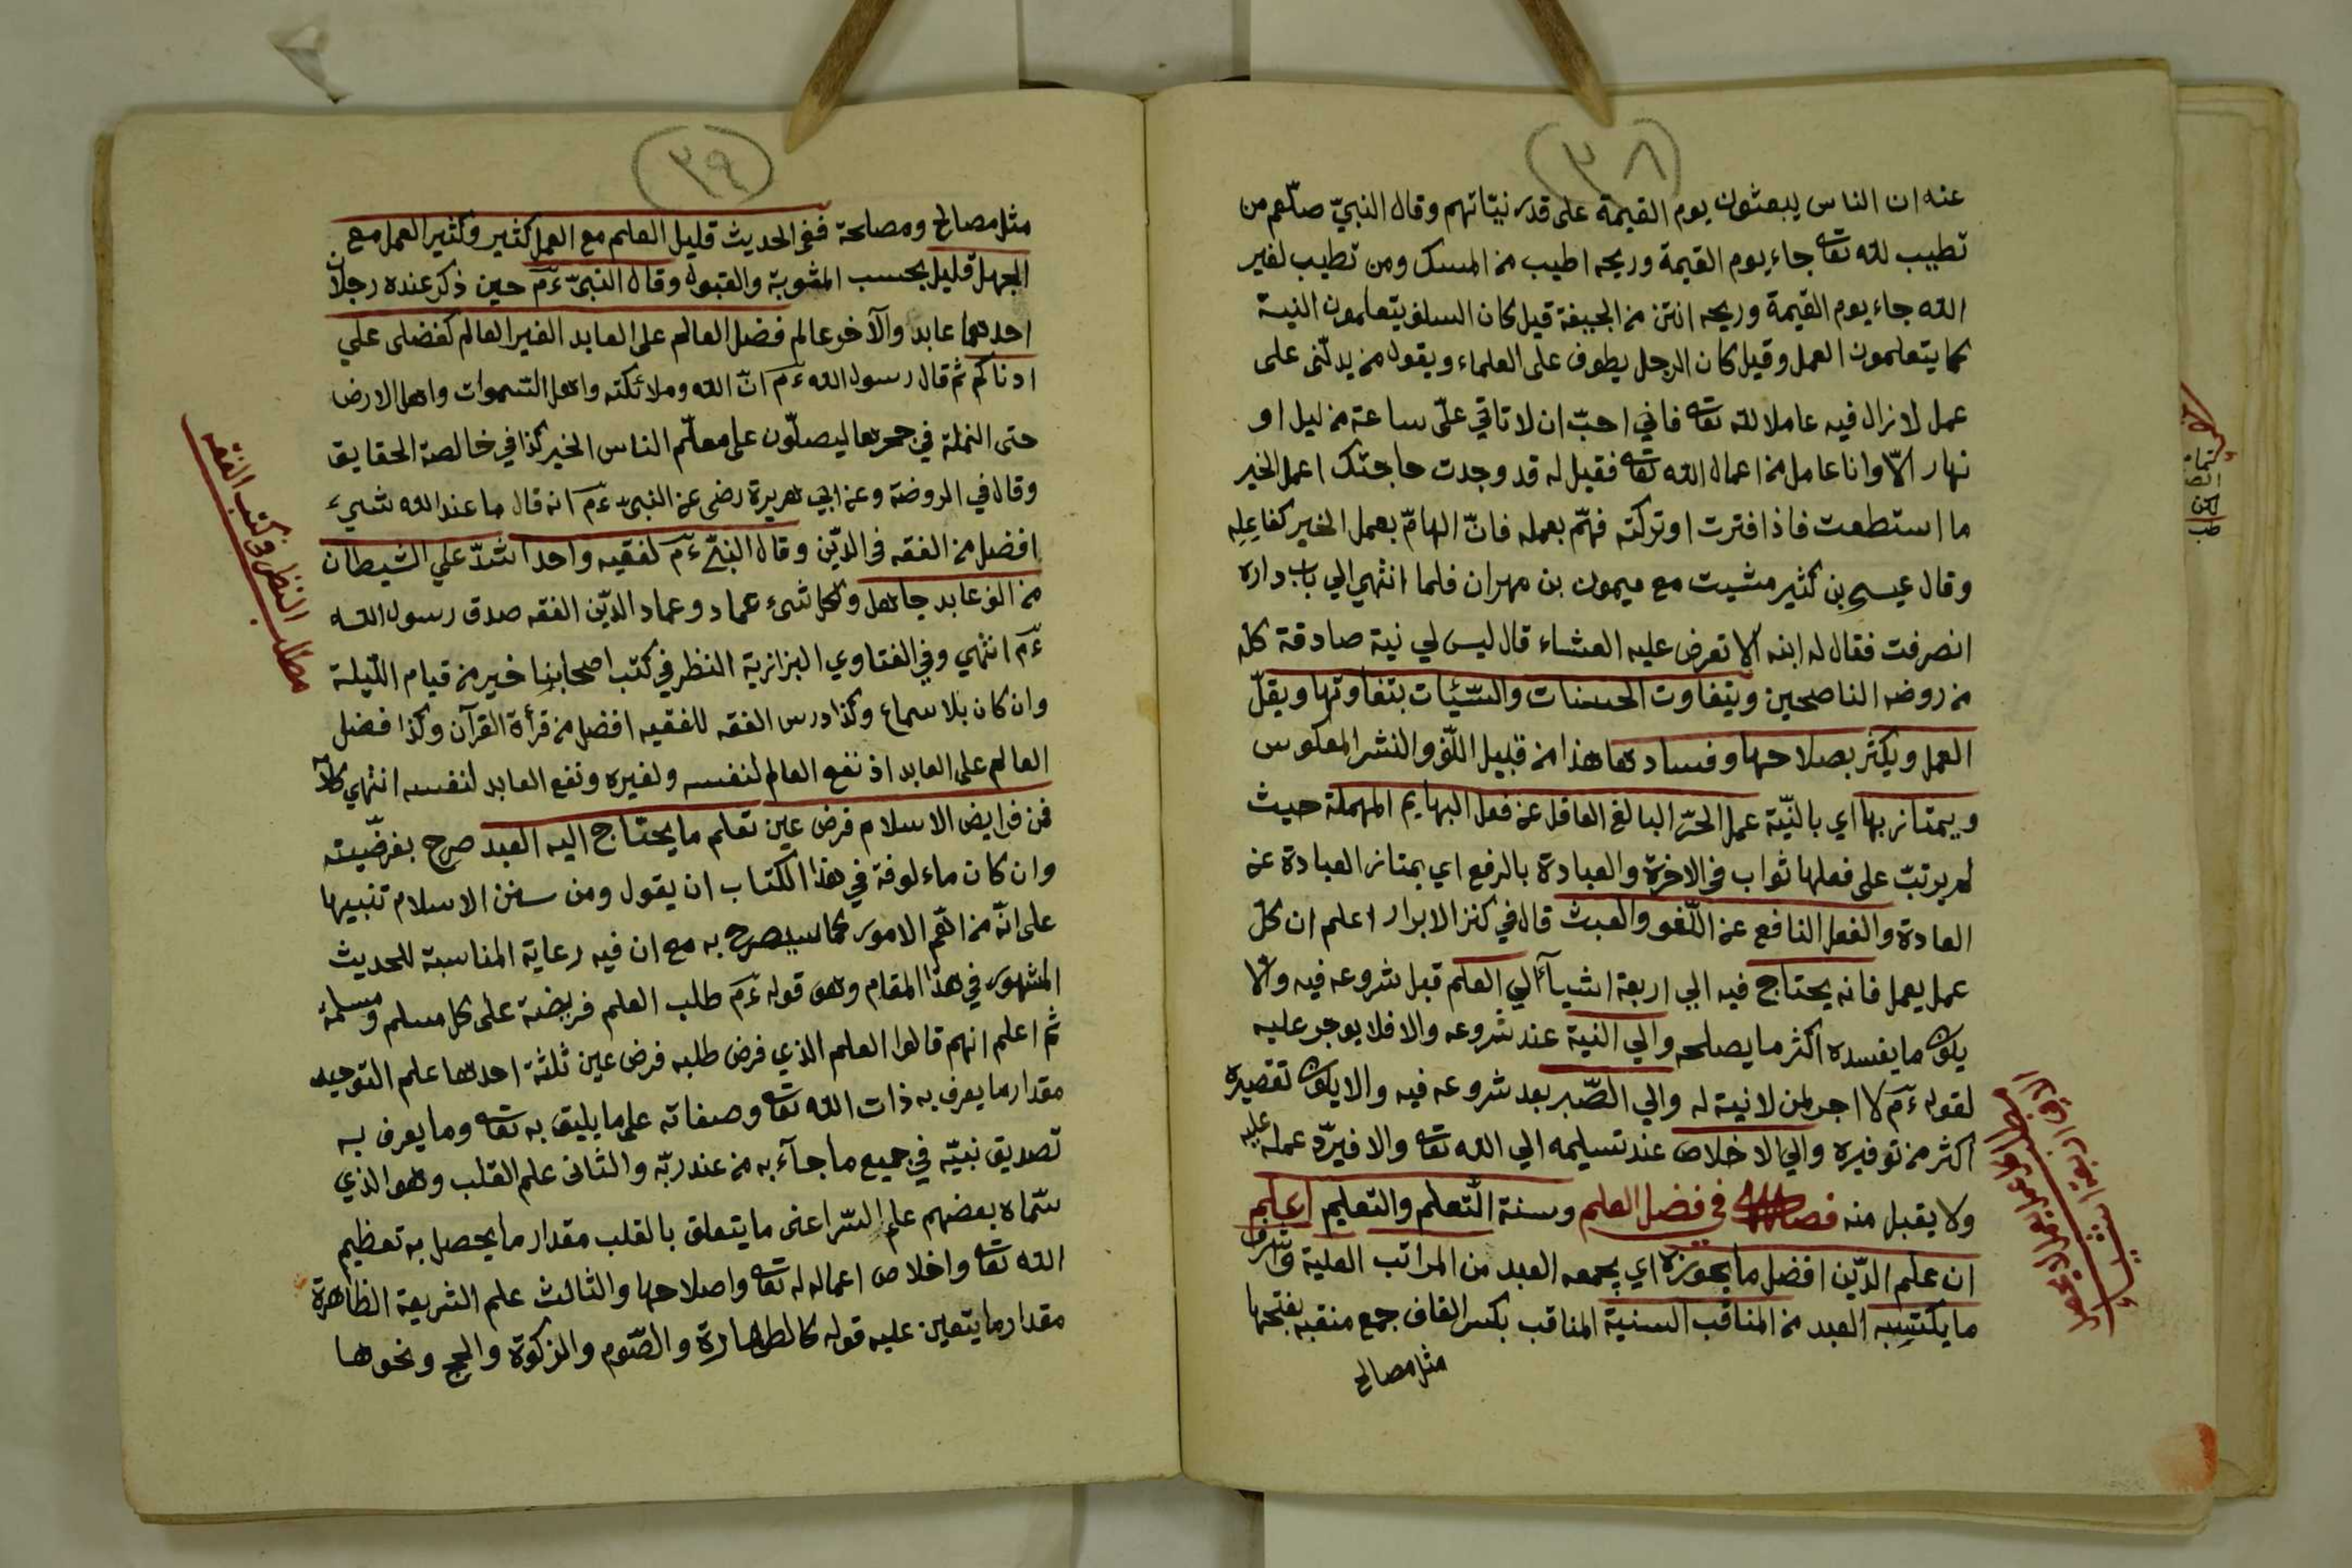 ٣٨
عنه ان الناس يبعثون يوم القيمة على قدر نيّاتهم وقال النبيّ صلّعم من
تطيب لله تعا جاء يوم القيمة وريحه اطيب من المسك ومن تطيب لغير
الله جاء يوم القيمة وريحه انتن من الجيفة قيل كان السلف يتعلمون النية
كما يتعلمون العمل وقيل كان الرجل يطوف على العلماء ويقول من يدلّنى على
عمل لا نزال فيه عاملا لله تعا فاني احبّ ان لا تاتي علىّ ساعة من ليل او
نهار الّا وانا عامل من اعمال الله تعا فقيل له قد وجدت حاجتك اعمل الخير
ما استطعت فاذا فترت او تركته فهمّ بعمله فانّ الهامّ بعمل الخير كفاعِلِه
وقال عيسى بن كثير مشيت مع ميمون بن مهران فلما انتهي الي باب داره
انصرفت فقال له ابنه ألا تعرض عليه العشاء قال ليس لي نية صادقة كله
من روضه الناصحين ويتفاوت الحسنات والسّيّئات بتفاوتها ويقلّ
العمل ويكثر بصلاحها وفسادها هذا من قبيل اللّف والنشر المعكوس
ويمتاز بها اي بالنيّة عمل الحرّ البالغ العاقل عن فعل البهايم المهملة حيث
لم يرتبّ على فعلها ثواب في الاخرة والعبادة بالرفع اي يمتاز العبادة عن
العادة والفعل النافع عن اللّغو والعبث قال في كنز الابرار اعلم ان كلّ
عمل يعمل فانه يحتاج فيه الي اربعة اشيآء الي العلم قبل شروعه فيه والا
يكون ما يفسده اكثر ما يصلحه والي النية عند شروعه والا فلا يوجر عليه
لقوله ءم لا اجر لمن لا نية له والي الصّبر بعد شروعه فيه والا يكون تقصيره
اكثر من توفيره والي الاخلاص عند تسليمه الي الله تعا والا فيردّ عمله عليه
ولا يقبل منه فصل في فضل العلم وسنة التّعلم والتعليم اعلم
ان علم الدّين افضل ما يحوزه اي يجمعه العبد من المراتب العلية واشرف
ما يكتسِبه العبد من المناقب السنية المناقب بكسر القاف جمع منقبه بفتحها
مثل مصالح
٣٩
مثل مصالح ومصلحة ففي الحديث قليل العلم مع العمل كثير وكثير العمل مع
الجهل قليل بحسب المثوبة والقبول وقال النبىّ ءم حين ذكر عنده رجلان
احدهما عابد والآخر عالم فضل العالم على العابد الغير العالم كفضلى علي
ادناكم ثم قال رسول الله ءم انّ الله وملائكته واهل السّموات واهل الارض
حتى النملة في جحرها ليصلّون على معلّم الناس الخير كذا في خالصة الحقايق
وقال في الروضة وعن ابي هريرة رضى عن النبىّ ءم انه قال ما عند الله شيء
افضل من الفقه في الدّين وقال النبىّ ءم لفقيه واحد اشدّ علي الشيطان
من الف عابد جاهل ولكل شىء عماد وعماد الدّين الفقه صدق رسول الله
ءم انتهي وفي الفتاوي البزازية النظر في كتب اصحابنا خير من قيام اللّيلة
وان كان بلا سماع وكذا درس الفقه للفقيه افضل من قرأة القرآن وكذا فضل
العالم على العابد اذ نفع العالم لنفسه ولغيره ونفع العابد لنفسه انتهي
فمن فرايض الاسلام فرض عين تعلم ما يحتاج اليه العبد صرح بفرضيته
وان كان ماءلوفة في هذا الكتاب ان يقول ومن سنن الاسلام تنبيها
على انّه من اهّم الامور كما سيصرح به مع ان فيه رعاية المناسبة للحديث
المشهور في هذا المقام وهو قوله ءم طلب العلم فريضة على كل مسلم ومسلمة
ثم اعلم انهم قالوا العلم الذي فرض طلبه فرض عين ثلثة احدها علم التوحيد
مقدار ما يعرف به ذات الله تعا وصفاته على ما يليق به تعا وما يعرف به
تصديق نبيّه في جميع ما جآء به من عند ربّه والثانى علم القلب وهو الذي
سّماه بعضهم علم السّر اعنى ما يتعلق بالقلب مقدار ما يحصل به تعظيم
الله تعا واخلاص اعماله له تعا واصلاحها والثالث علم الشريعة الظاهرة
مقدار ما يتعين عليه قوله كالطهارة والصّوم والزكوة والحج ونحوها
مطلب النظر في كتب الفقه